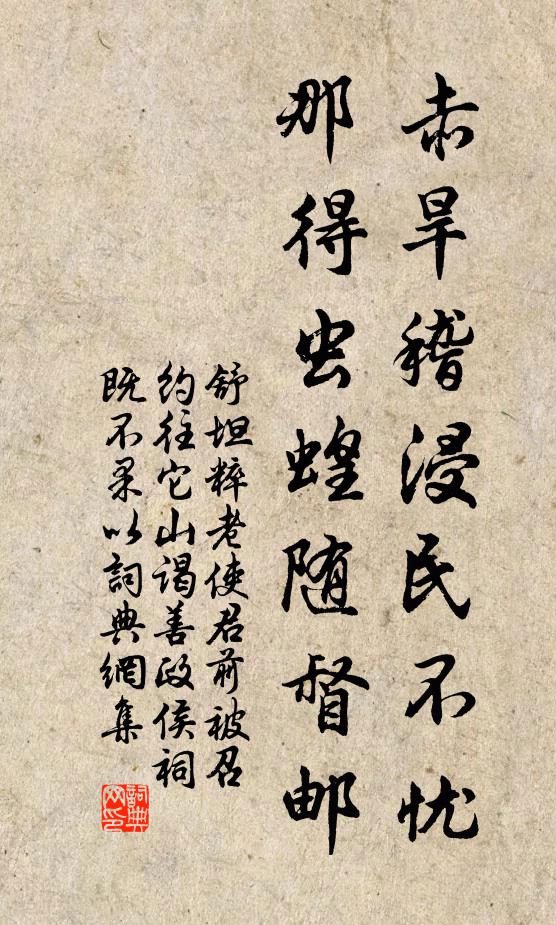 赤旱稽浸民不忧
那得虫蝗随督邮
舒坦粹老使君前被召
约往它山谒善政侯祠
既不果以詞典網集
詞典
网印